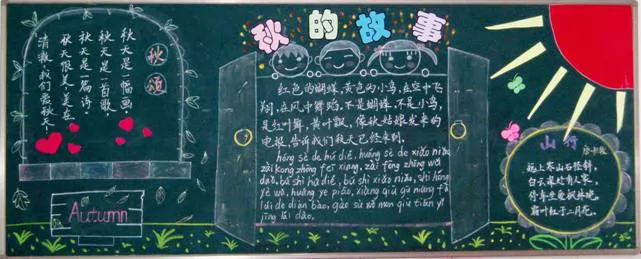 秋的故事
秋颂
秋天是一幅画
秋天是一首歌,
秋天是一篇诗。
秋天很美,美在
清澈,我们爱秋天!
Autumn
红色的蝴蝶,黄色的小鸟,在空中飞
翔,在风中舞蹈,不是蝴蝶,不是小鸟,
是红叶舞,黄叶飘,像秋姑娘发来的
电报,告诉我们秋天已经来到.
hóng sè de hú dié, huáng sè de xiǎo niǎo
zài kōng zhōng fēi xiáng, zài fēng zhōng wǔ
dǎo, bú shì hú dié, bú shì xiǎo niǎo, shì hóng
yè wǔ, huáng yè piāo, xiàng qiū gū niang fā
lái de diàn bào, gào sù wǒ men qiū tiān yǐ
jīng lái dào.
山行
唐·杜牧
远上寒山石径斜,
白云深处有人家.
停车坐爱枫林晚,
霜叶红于二月花.